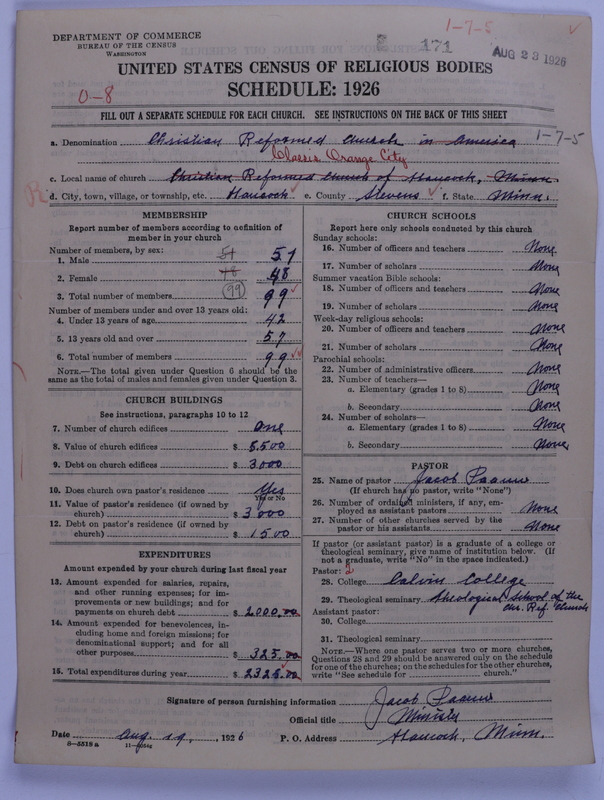 DEPARTMENT OF COMMERCE
BUREAU OF THE CENSUS
WASHINGTON
1-7-5
171
AUG 23 1926
UNITED STATES CENSUS OF RELIGIOUS BODIES
SCHEDULE: 1926
0-8
FILL OUT A SEPARATE SCHEDULE FOR EACH CHURCH. SEE INSTRUCTIONS ON THE BACK OF THIS SHEET
a. Denomination Christian Reformed Church in America 1-7-5
Classis Orange City
c. Local name of church Christian Reformed Church of Hancock, Minn.
d. City, town, village, or township, etc. Hancock e. County Stevens f. State Minn.
MEMBERSHIP
Report number of members according to definition of member in your church
Number of members, by sex:
1. Male 51 51
2. Female 48 48
3. Total number of members 99 99
Number of members under and over 13 years old:
4. Under 13 years of age 42
5. 13 years old and over 57
6. Total number of members 99
NOTE.—The total given under Question 6 should be the same as the total of males and females given under Question 3.
CHURCH BUILDINGS
See instructions, paragraphs 10 to 12
7. Number of church edifices One
8. Value of church edifices $ 5500
9. Debt on church edifices $ 3000
10. Does church own pastor's residence Yes
Yes or No
11. Value of pastor's residence (if owned by church) $ 3000
12. Debt on pastor's residence (if owned by church) $ 1500
EXPENDITURES
Amount expended by your church during last fiscal year
13. Amount expended for salaries, repairs, and other running expenses; for improvements or new buildings; and for payments on church debt $ 2000.00
14. Amount expended for benevolences, including home and foreign missions; for denominational support; and for all other purposes $ 325.00
15. Total expenditures during year $ 2325.00
CHURCH SCHOOLS
Report here only schools conducted by this church
Sunday schools:
16. Number of officers and teachers None
17. Number of scholars None
Summer vacation Bible schools:
18. Number of officers and teachers None
19. Number of scholars None
Week-day religious schools:
20. Number of officers and teachers None
21. Number of scholars None
Parochial schools:
22. Number of administrative officers None
23. Number of teachers—
a. Elementary (grades 1 to 8) None
b. Secondary None
24. Number of scholars—
a. Elementary (grades 1 to 8) None
b. Secondary None
PASTOR
25. Name of pastor Jacob Paauw
(If church has no pastor, write "None")
26. Number of ordained ministers, if any, employed as assistant pastors None
27. Number of other churches served by the pastor or his assistants None
If pastor (or assistant pastor) is a graduate of a college or theological seminary, give name of institution below. (If not a graduate, write "No" in the space indicated.)
Pastor: 2
28. College Calvin College
29. Theological seminary Theological School of the Chr. Ref. Church
Assistant pastor:
30. College
31. Theological seminary
NOTE.—Where one pastor serves two or more churches, Questions 28 and 29 should be answered only on the schedule for one of the churches; on the schedules for the other churches, write "See schedule for church."
Signature of person furnishing information Jacob Paauw
Official title Minister
Date Aug. 19, 1926 P. O. Address Hancock, Minn.
8-5518 a